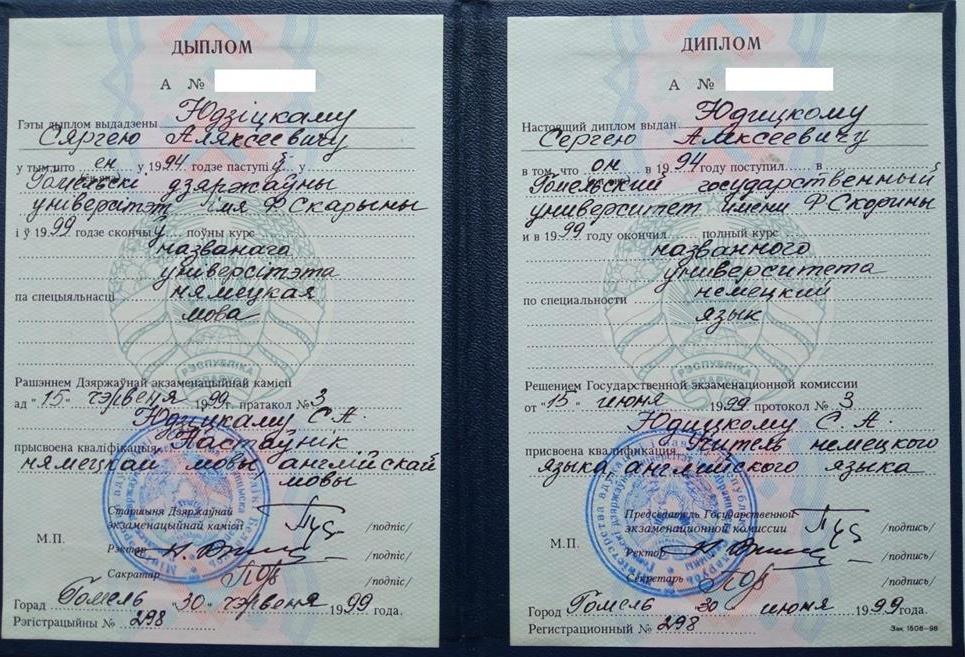 ДЫПЛОМ
А №
Гэты дыплом выдадзены Юдзіцкаму
Сяргею Аляксеевичу
у тым, што ен у 1994 годзе паступіў у
Гомельскі дзяржаўны
универсітэт імя Ф Скарыны
і ў 1999 годзе скончыў поўны курс
названага
універсітэта
па спецыяльнасці нямецкая
мова
РЭСПУБЛІКА
БЕЛАРУСЬ
Рашэннем Дзяржаўнай экзаменацыйнай камісіі
ад "15" чэрвеня 1999 г. пратакол № 3
Юдзіцкаму С. А.
прысвоена кваліфікацыя Настаўнік
нямецкай мовы, англійскай
мовы
Старшыня Дзяржаўнай
экзаменацыйнай камісіі /подпіс/
М.П.
Рэктар /подпіс/
Сакратар /подпіс/
Горад Гомель "30" чэрвеня 1999 года.
Рэгістрацыйны № 298
ДИПЛОМ
А №
Настоящий диплом выдан Юдицкому
Сергею Алексеевичу
в том, что он в 1994 году поступил в
Гомельский государственный
университет имени Ф Скорины
и в 1999 году окончил полный курс
названного
университета
по специальности немецкий
язык
РЭСПУБЛІКА
БЕЛАРУСЬ
Решением Государственной экзаменационной комиссии
от "15" июня 1999 протокол № 3
Юдицкому С. А.
присвоена квалификация Учитель немецкого
языка, английского языка
Председатель Государственной
экзаменационной комиссии /подпись/
М.П.
Ректор /подпись/
Секретарь /подпись/
Город Гомель 30 июня 1999 года.
Регистрационный № 298
Зак. 1508—98